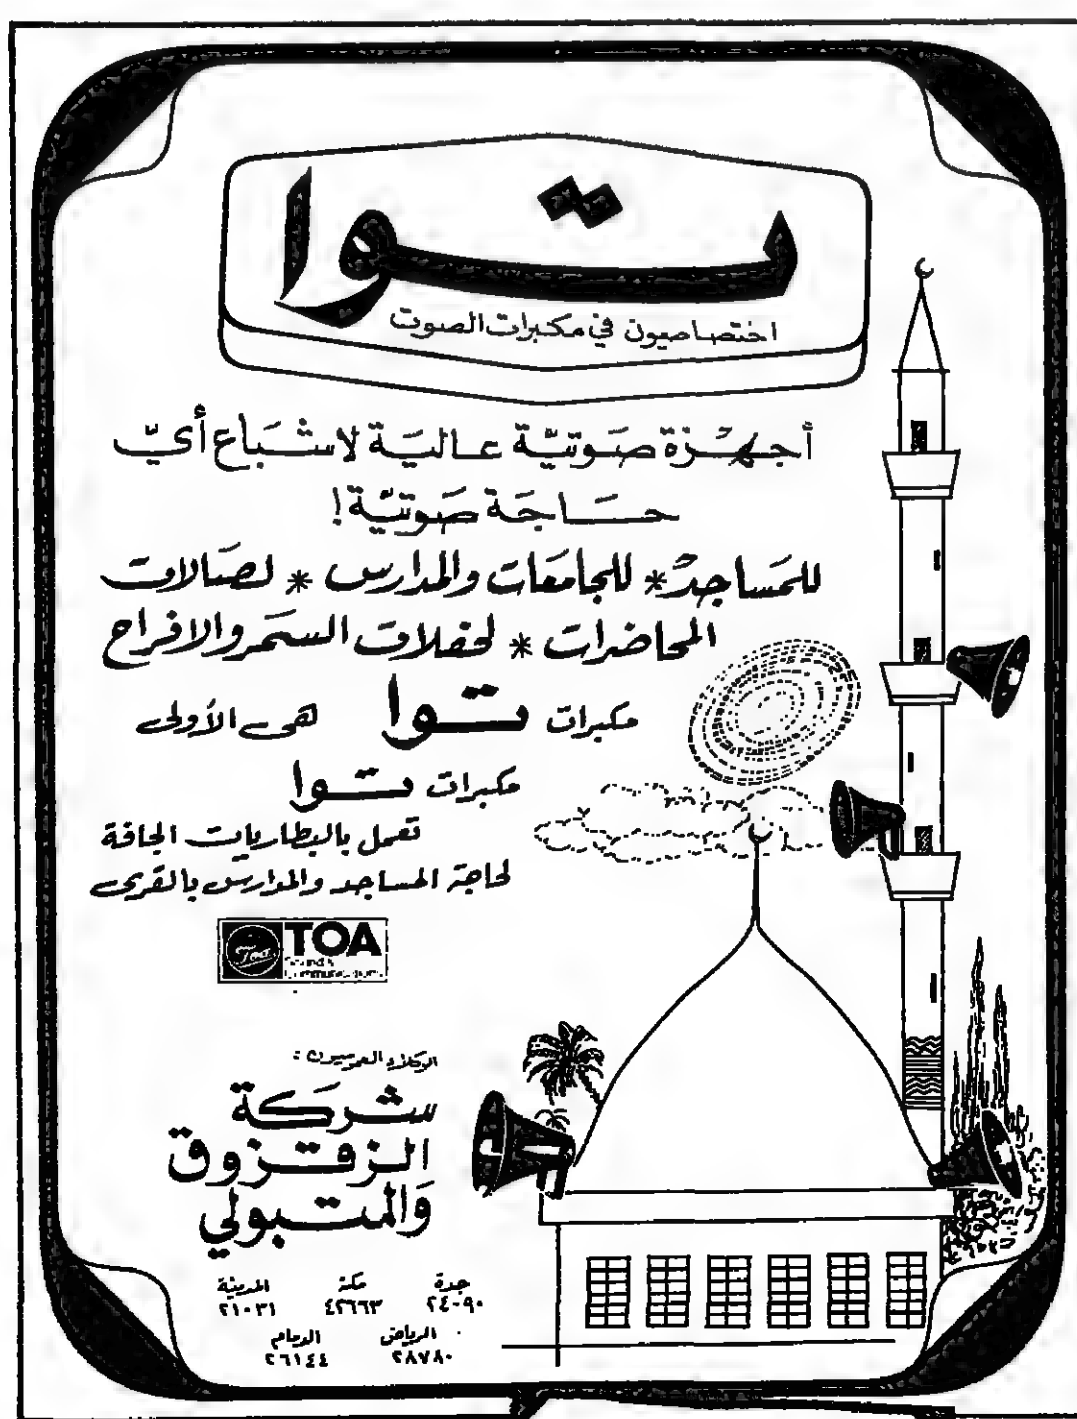 توا
اختصاصيون في مكبرات الصوت
أجهزة صوتيّة عالية لاشباع أيّ
حاجة صوتيّة!
للمساجد * للجامعات والمدارس * لصالات
المحاضرات * لحفلات السمر والافراح
مكبرات توا هى الأولى
مكبرات توا
تعمل بالبطاريات الجافة
لحاجة المساجد والمدارس بالقرى
TOA
الوكلاء العموميون :
شركة
الزقزوق
والمتبولي
جدة مكة المدينة
٢٤٠٩٠ ٤٢٦٦٣ ٢١٠٣١
الرياض الدمام
٢٨٧٨٠ ٢٦١٤٤